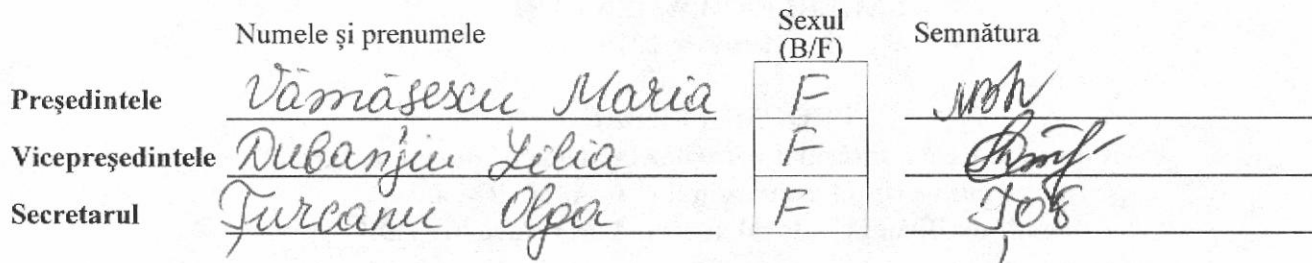 Numele și prenumele Sexul (B/F) Semnătura
Președintele Vămășescu Maria F
Vicepreședintele Lilia F
Secretarul Țurcanu Olga F